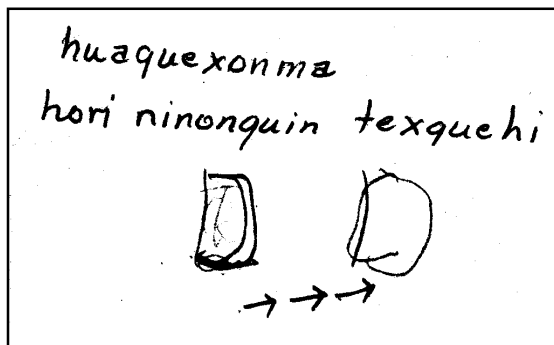 huaquexonma
hori ninonquin texquehi